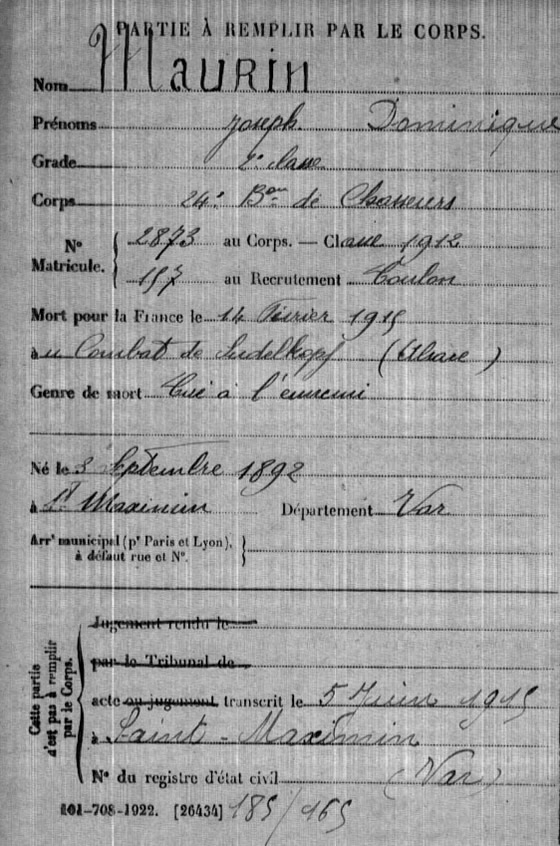 PARTIE À REMPLIR PAR LE CORPS.
Nom MAURIN
Prénoms Joseph Dominique
Grade 2e classe
Corps 24e Bon de Chasseurs
No Matricule. { 2873 au Corps. — Classe 1912
157 au Recrutement Toulon
Mort pour la France le 14 Février 1915
au Combat de Sudelkopf (Alsace)
Genre de mort Tué à l'ennemi
Né le 3 Septembre 1892
à St Maximin Département Var
Arrt municipal (pr Paris et Lyon), à défaut rue et No. }
Cette partie n'est pas à remplir par le Corps.
Jugement rendu le
par le Tribunal de
acte ou jugement transcrit le 5 Juin 1915
à Saint-Maximin
No du registre d'état civil (Var)
101-708-1922. [26434] 185/165